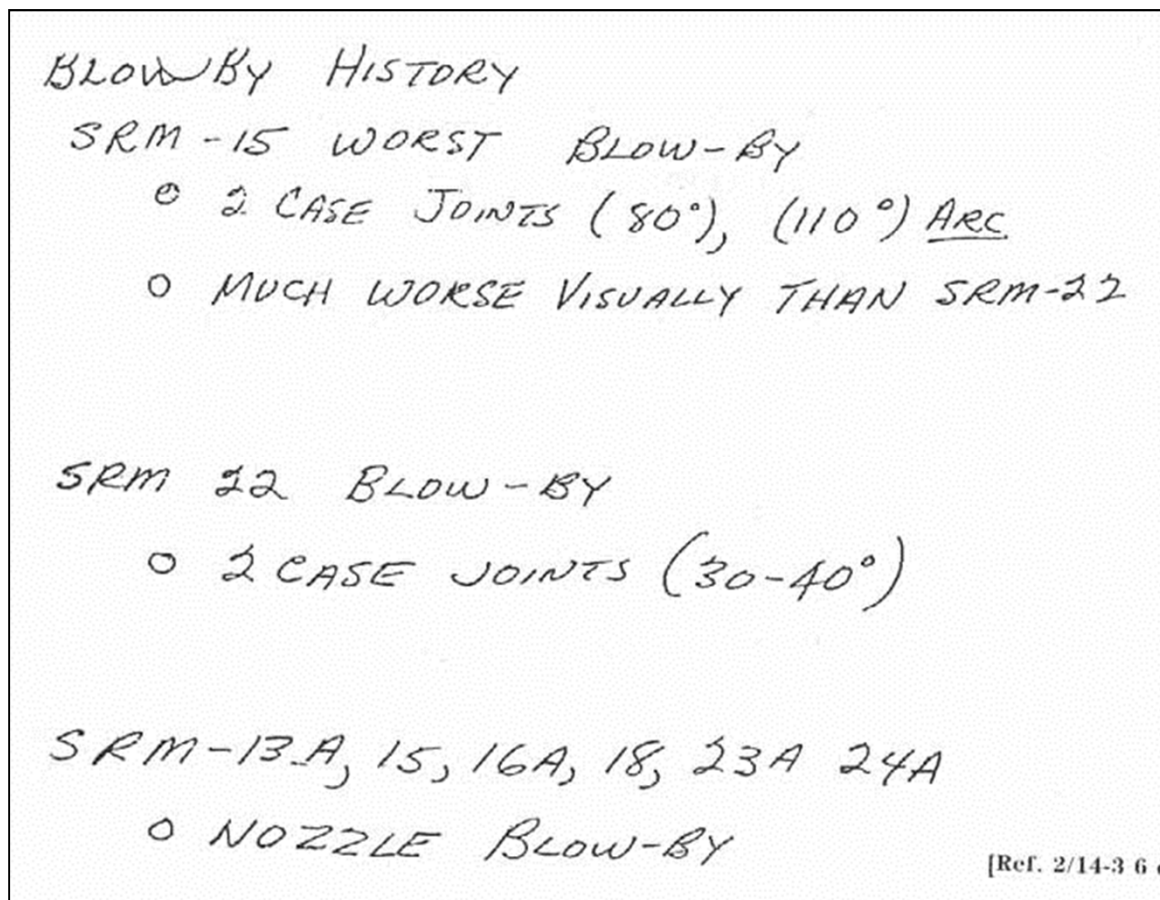 BLOW BY HISTORY
SRM-15 WORST BLOW-BY
o 2 CASE JOINTS (80°), (110°) ARC
o MUCH WORSE VISUALLY THAN SRM-22
SRM 22 BLOW-BY
o 2 CASE JOINTS (30-40°)
SRM-13A, 15, 16A, 18, 23A 24A
o NOZZLE BLOW-BY
[Ref. 2/14-3 6